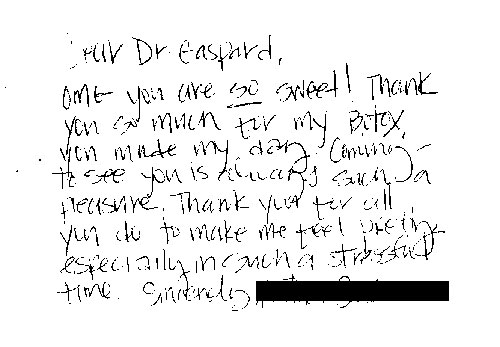 Dear Dr. Gaspard,
OMG you are so sweet! Thank
you so much for my Botox,
you made my day. Coming
to see you is always such a
pleasure. Thank you for all
you do to make me feel pretty
especially in such a stressful
time. Sincerely